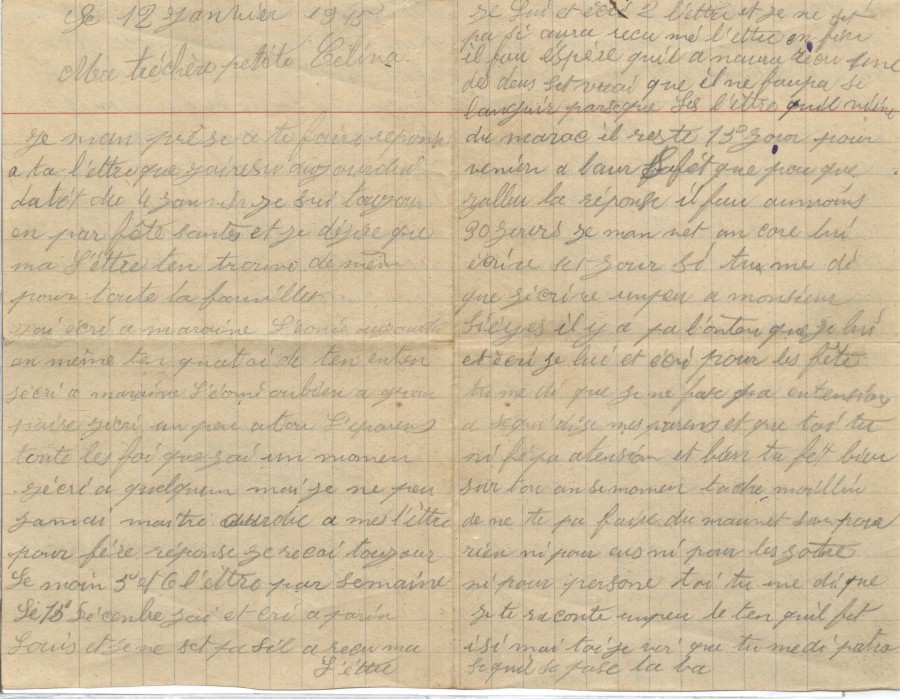 Le 12 janvier 1915
Ma tréchère petite Célina.
Je man prêse a te faire réponse
a ta l'éttre que jairesu aujourdui
datét du 4 janvier je sui toujour
en par fête santé et je désire que
ma l'éttre ten trouve de mêm
pour toute la famillet
jai écri a maraine Léonie
en même ten quatoi de ten enten
jécri a maraine Léoni oubien a
paire jécri un peu a tou
toute les foi que jai un momen
jécri a quelquun mai je ne peu
jamai maitre a me l'éttre
pour fére réponse je recoi toujour
le moin 5 et 6 l'éttre par semaine
Le 15 Décembre jai et cri a parin
Louis et je ne set pa sil a recu ma
l'éttre
je lui et écri 2 l'éttre et je ne set
pa si aura recu me l'éttre en fin
il fau espére quil a naura récu une
des deus set vrai que il ne faupa se
languir parseque les l'éttre quil viène
du marac il reste 15 jour pour
venir a laur et que pour que
jallu la réponse il fau aumoins
30 jours je man net an core lui
écrire set jour si tu me di
que jécrire unpeu a monsieur
il y a pa lonten que je lui
et écri je lui et écri pour les fête
tu me di que je ne fase pa a tension
a sequi dise mes parens et que toi tu
ni fé pa atension et bien tu fét bien
surtou an se momen
de ne te pa faire du mauvet san pour
rien ni pour eus ni pour les zotre
ni pour persone toi tu me di que
je te raconte unpeu le ten quil fet
isi mai toi je voi que tu me di pa tro
sequil se pase la ba